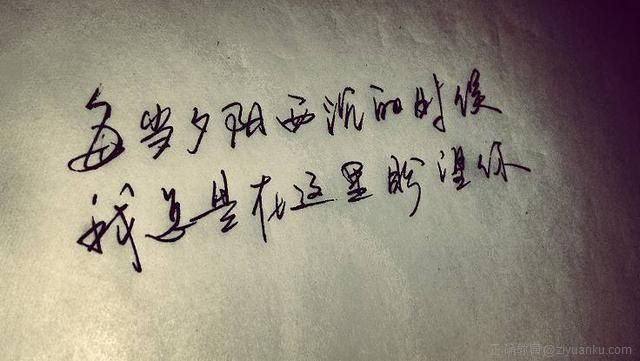 每当夕阳西沉的时候
我总是在这里盼望你
@ziyuanku.com